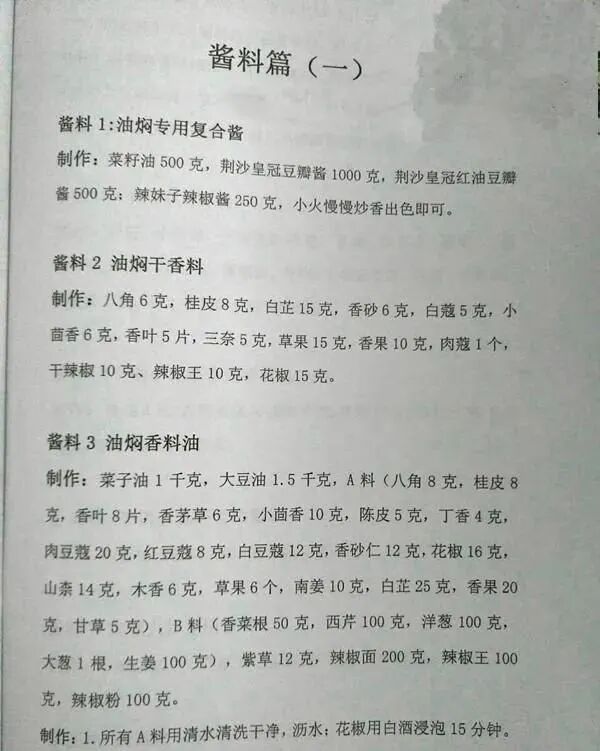 酱料篇（一）
酱料 1:油焖专用复合酱
制作：菜籽油 500 克，荆沙皇冠豆瓣酱 1000 克，荆沙皇冠红油豆瓣
酱 500 克；辣妹子辣椒酱 250 克，小火慢慢炒香出色即可。
酱料 2 油焖干香料
制作：八角 6 克，桂皮 8 克，白芷 15 克，香砂 6 克，白蔻 5 克，小
茴香 6 克，香叶 5 片，三奈 5 克，草果 15 克，香果 10 克，肉蔻 1 个，
干辣椒 10 克、辣椒王 10 克，花椒 15 克。
酱料 3 油焖香料油
制作：菜子油 1 千克，大豆油 1.5 千克，A 料（八角 8 克，桂皮 8
克，香叶 8 片，香茅草 6 克，小茴香 10 克，陈皮 5 克，丁香 4 克，
肉豆蔻 20 克，红豆蔻 8 克，白豆蔻 12 克，香砂仁 12 克，花椒 16 克，
山柰 14 克，木香 6 克，草果 6 个，南姜 10 克，白芷 25 克，香果 20
克，甘草 5 克），B 料（香菜根 50 克，西芹 100 克，洋葱 100 克，
大葱 1 根，生姜 100 克），紫草 12 克，辣椒面 200 克，辣椒王 100
克，辣椒粉 100 克。
制作：1.所有 A 料用清水清洗干净，沥水；花椒用白酒浸泡 15 分钟。